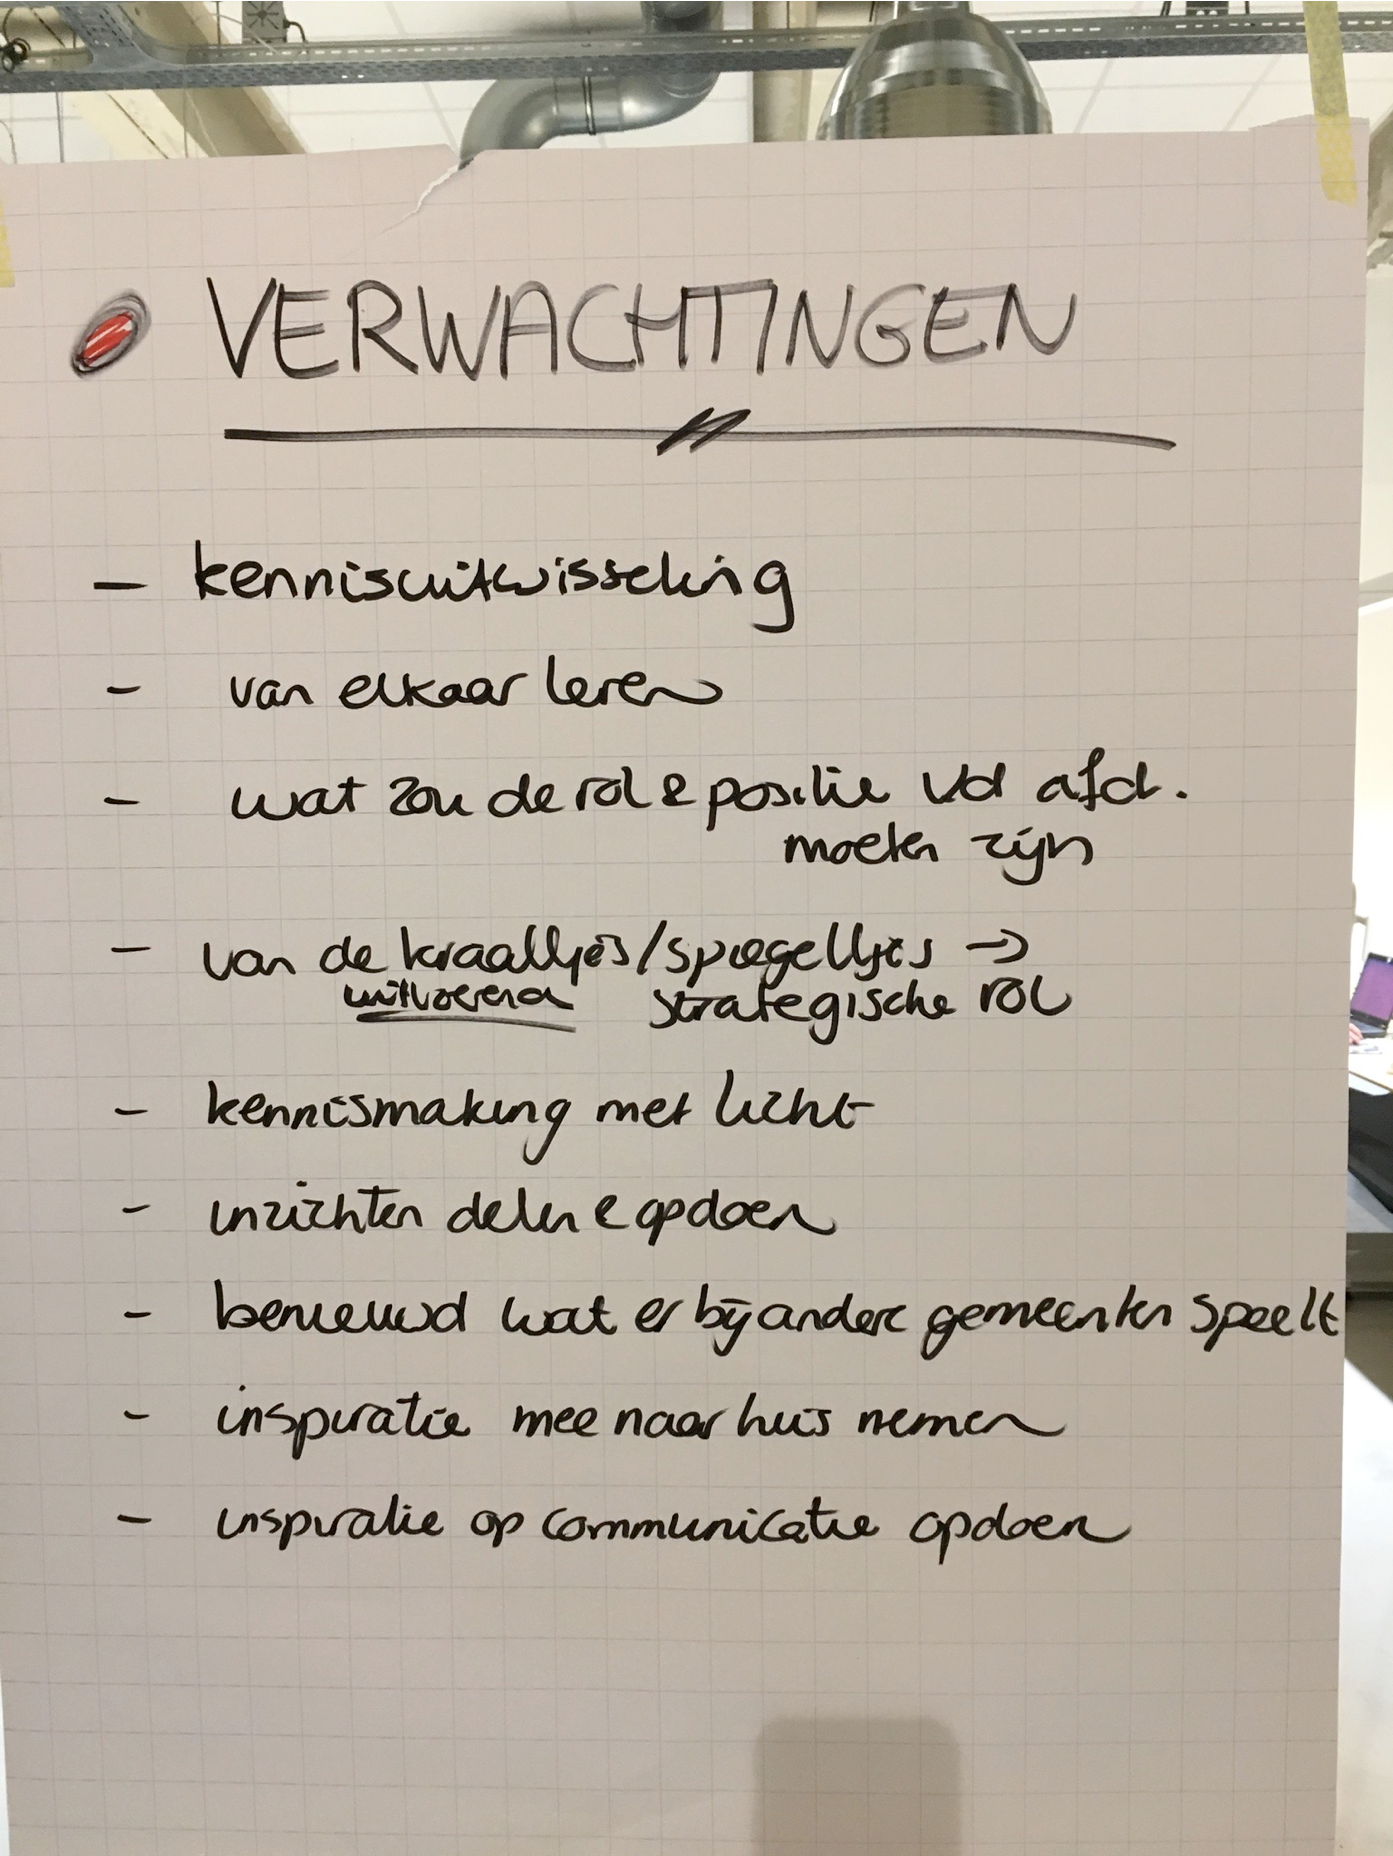 VERWACHTINGEN
- kennisuitwisseling
- van elkaar leren
- wat zou de rol & positie vd afd.
moeten zijn
- van de kraaltjes/spiegeltjes →
uitvoerend strategische rol
- kennismaking met licht
- inzichten delen & opdoen
- benieuwd wat er bij andere gemeenten speelt
- inspiratie mee naar huis nemen
- inspiratie op communicatie opdoen